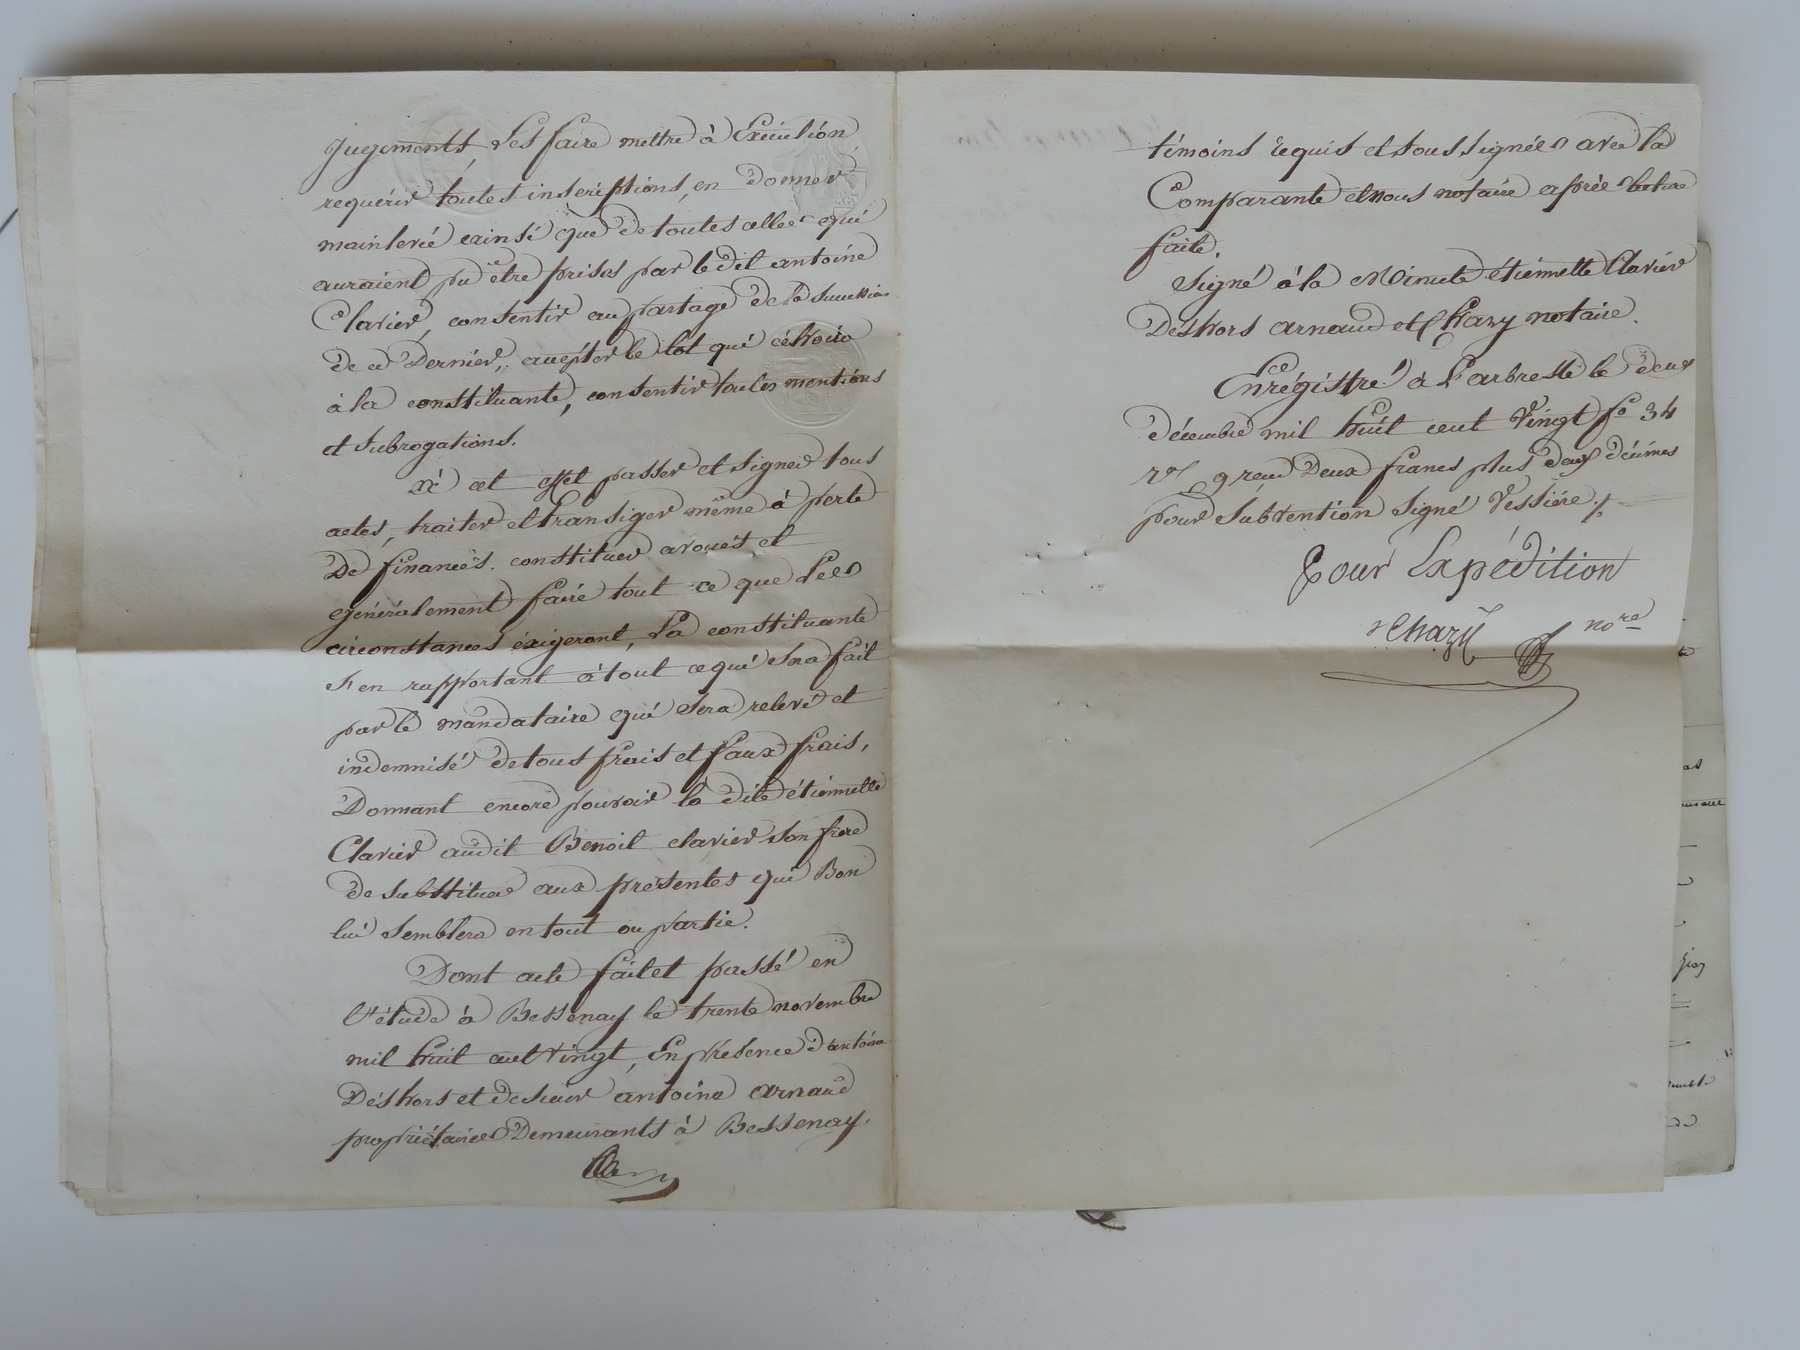 jugements, Les faire mettre à Exécution
requérir toutes inscriptions, en donner
mainlevée ainsi que de toutes celles qui
auraient pu être prises par ledit antoine
Clavier, consentir au partage de la succession
de ce Dernier, accepter le lot qui échoira
à la constituante, consentir toutes mentions
et subrogations.
à cet effet passer et signer tous
actes, traiter et transiger même à perte
De finances. constituer avoués et
généralement faire tout ce que Les
circonstances éxigeront, La constituante
s'en rapportant à tout ce qui sera fait
par le mandataire qui sera relevé et
indemnisé de tous frais et faux frais,
Donnant encore pouvoir la dite étiennette
Clavier audit Benoit clavier son frere
de substituer aux présentes qui Bon
lui semblera en tout ou partie.
Dont acte fait et passé en
l'étude à Bessenay le trente novembre
mil huit cent vingt, En présence d'antoine
Deshors et de sieur antoine arnaud
propriétaires Demeurants à Bessenay.
témoins requis et soussignés avec la
Comparante et nous notaire après lecture
faite.
Signé à la Minute étiennette Clavier
Deshors arnaud et Chazy notaire.
Enrégistré à L'arbresle le deux
décembre mil huit cent Vingt fo 34
ro 9 reçu Deux francs plus deux décimes
pour subvention signé Vessière
Pour Expédition
Chazy nore